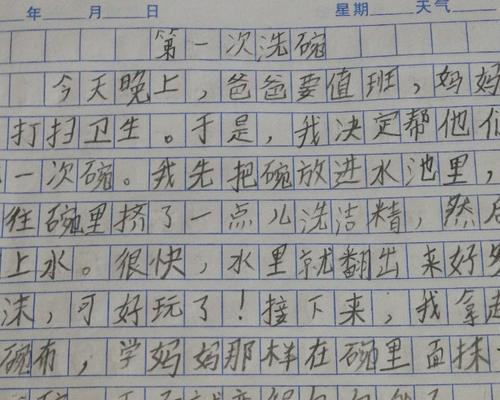 年 月 日 星期 天气
第一次洗碗
今天晚上，爸爸要值班，妈妈
打扫卫生。于是，我决定帮他们
一次碗。我先把碗放进水池里，
往碗里挤了一点儿洗洁精，然后
上水。很快，水里就翻出来好多
沫，可好玩了！接下来，我拿起
碗布，学妈妈那样在碗里面抹